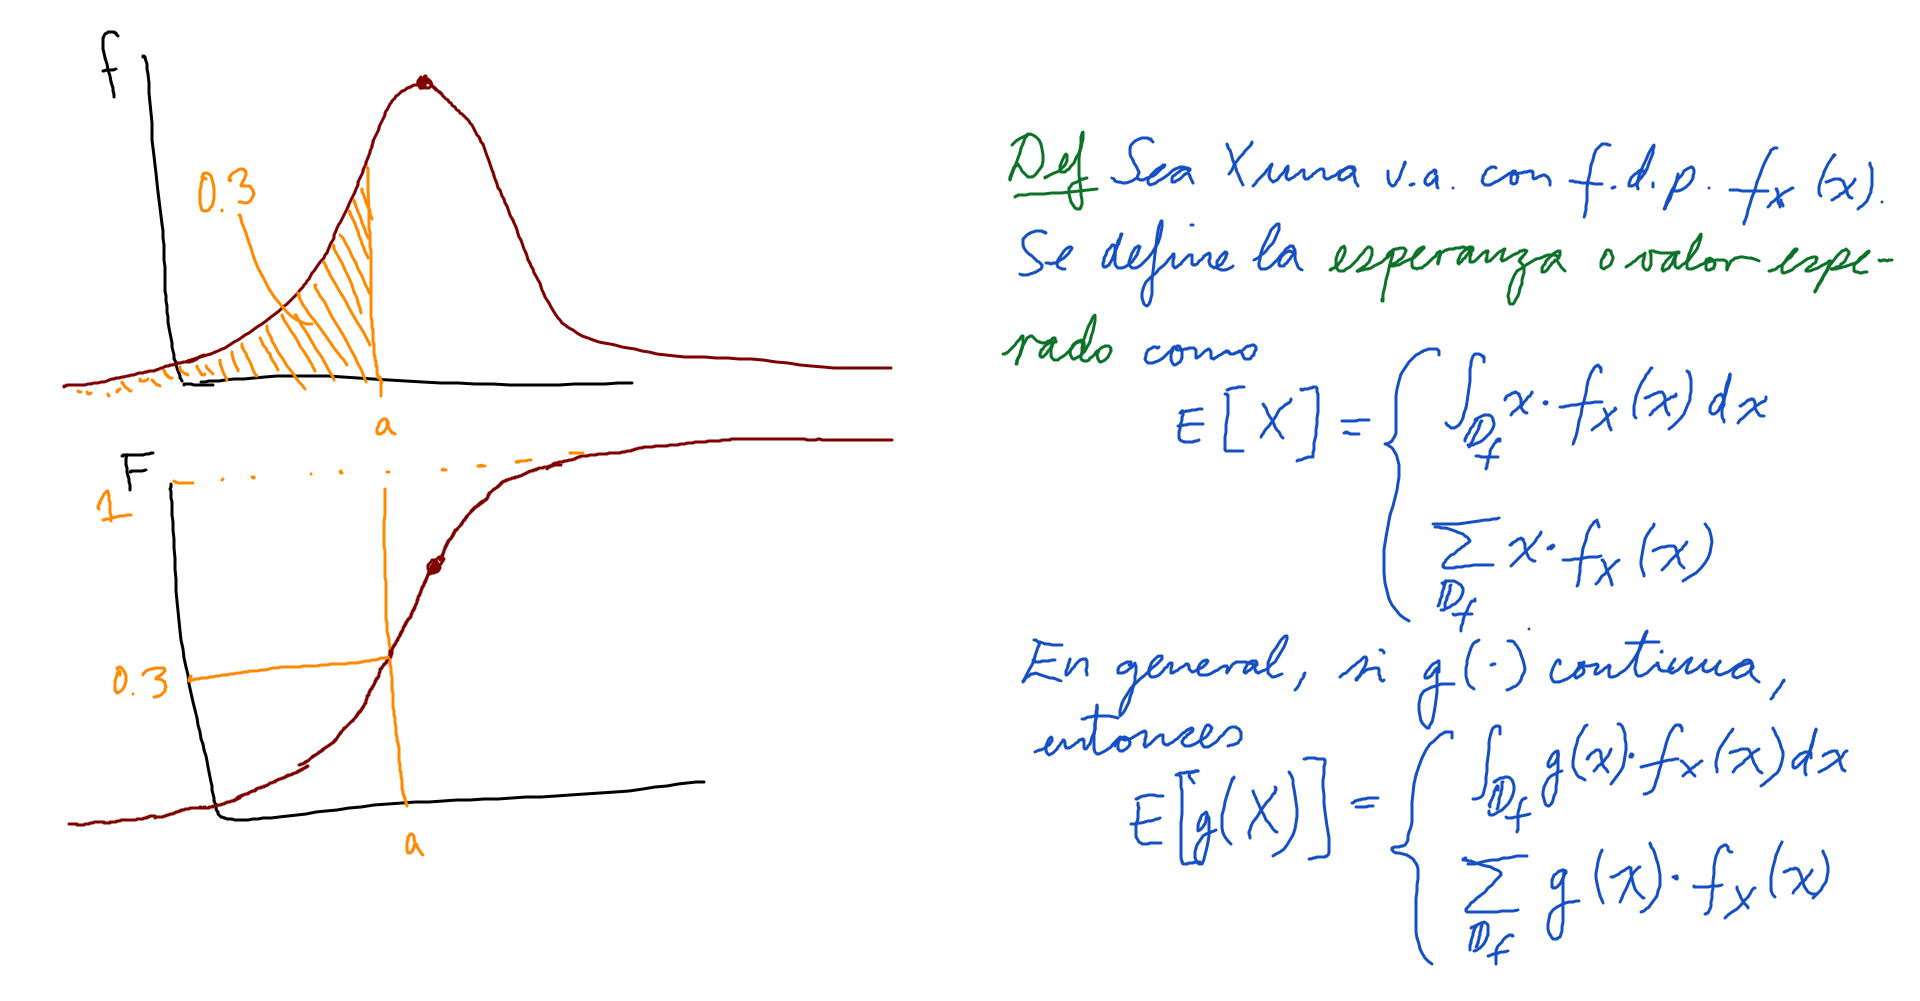 f
0.3
a
F
1
0.3
a
Def Sea X una v.a. con f.d.p. f_X(x).
Se define la esperanza o valor espe-
rado como
E[X] = { ∫_{𝔻_f} x·f_X(x)dx
∑_{𝔻_f} x·f_X(x)
En general, si g(·) continua,
entonces
E[g(X)] = { ∫_{𝔻_f} g(x)·f_X(x)dx
∑_{𝔻_f} g(x)·f_X(x)